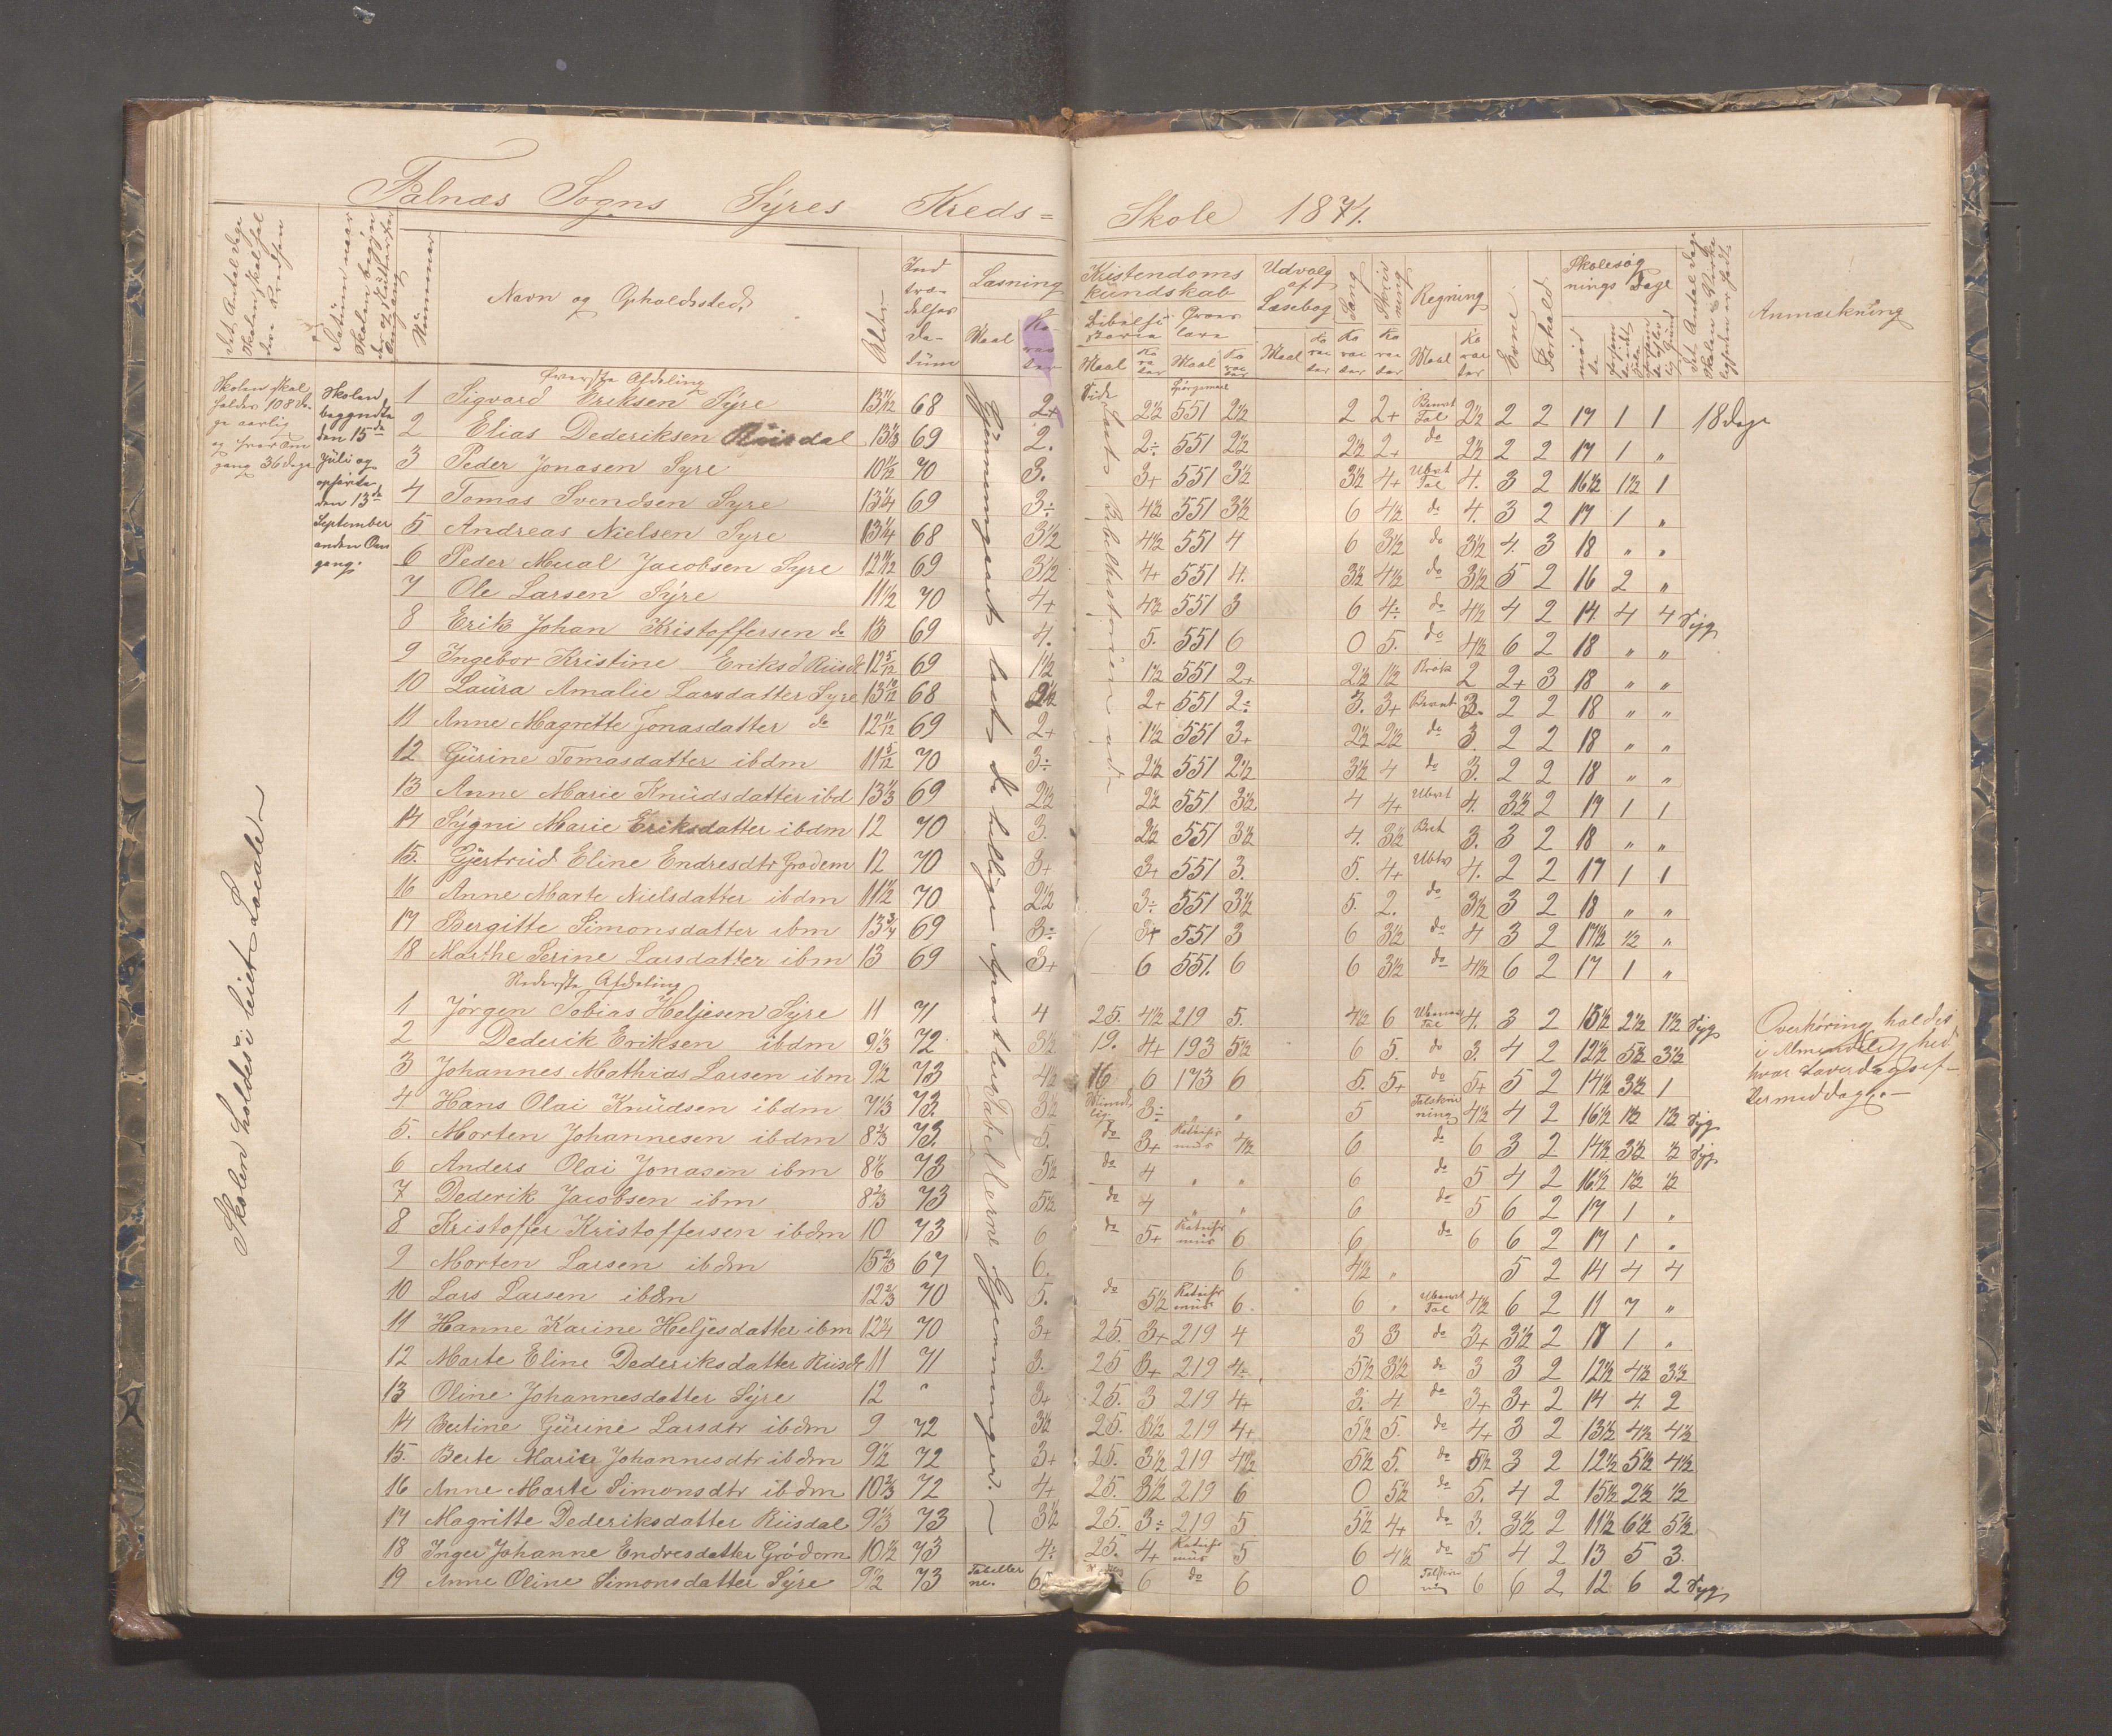 Falnæs Sogns Syres Kreds= Skole 1871.
Det Antal Dage Skolen skal holdes i Kredsen
Datum naar Skolen begynder og slutter hver Omgang
Nummer
Navn og Opholdssted
Alder
Indtrædelses Datum
Læsning
Maal
Karacter
Kristendoms kundskab
Bibelhistorie
Maal
Karacter
Troeslære
Maal
Karacter
Udvalg af Læsebog
Maal
Karacter
Sang
Karacter
Skrivning
Karacter
Regning
Maal
Karacter
Evne
Forhold
Skolesøgnings Dage
mødte
Det Antal Dage Skolen i Virkeligheden er holdt
Anmærkning
Skolen skal
holdes 108 Da
ge aarlig
og hver Om
gang 36 dage
Skolen
begyndte
den 15de
Juli og
ophørte
den 13de
September
anden Om
gang.
Skolen holdes i leiet Locale
Gjennemgaaet læst de hellige Apostler Tabellerne Gjerninger.
Øverste Afdeling
1 Sigvard Eriksen Syre 13 11/12 68 2+ 2½ 551 2½ 2 2+ Benævt Tal 2½ 2 2 17 1 1 18 Dage
2 Elias Dederiksen Riisdal 13⅓ 69 2. 2÷ 551 2½ 2½ 2+ do 2½ 2 2 17 1 "
3 Peder Jonasen Syre 10 11/12 70 3. 3+ 551 3½ 3½ 4+ Ubevt Tal 4. 3 2 16½ 1½ 1
4 Tomas Svendsen Syre 13¼ 69 3÷ 4½ 551 3½ 6 4½ do 4. 3 2 17 1 "
5 Andreas Nielsen Syre 13¼ 68 3½ 4½ 551 4 6 3½ do 3½ 4. 3 18 " "
6 Peder Mual Jacobsen Syre 12 11/12 69 3½ 4+ 551 4. 3½ 4½ do 3½ 5 2 16 2 "
7 Ole Larsen Syre 11½ 70 4+ 4½ 551 3 6 4÷ do 4½ 4 2 14 4 4 Syg
8 Erik Johan Kristoffersen do 13 69 4. 5. 551 6 0 5. do 4½ 6 2 18 " "
9 Ingebor Kristine Eriksd Riisdl 12 5/12 69 1½ 1½ 551 2+ 2½ 1½ Brøk 2 2+ 3 18 " "
10 Laura Amalie Larsdatter Syre 13 10/12 68 2½ 2+ 551 2÷ 3. 3+ Benævt 3. 2 2 18 " "
11 Anne Magrette Jonasdatter do 12 11/12 69 2+ 1½ 551 3+ 2½ 2½ do 3. 2 2 18 " "
12 Gurine Tomasdatter ibdm 11 5/12 70 3÷ 2½ 551 2½ 3½ 4 do 3. 2 2 18 " "
13 Anne Marie Knudsdatter ibd 13⅓ 69 2½ 2½ 551 3½ 4 4+ Ubevt 4. 3½ 2 17 1 1
14 Sygni Marie Eriksdatter ibdm 12 70 3. 2½ 551 3½ 4. 3½ Bevt 3. 3 2 18 " "
15. Gjertrud Eline Endresdtr Grødem 12 70 3+ 3+ 551 3. 5. 4+ Ubtv 4. 2 2 17 1 1
16 Anne Marte Nielsdatter ibdm 11½ 70 2½ 3÷ 551 3½ 5. 2. do 3½ 3 2 18 " "
17 Bergitte Simonsdatter ibm 13¾ 69 3÷ 3+ 551 3 6 3½ do 4 3 2 17½ ½ "
18 Marthe Serine Larsdatter ibm 13 69 3+ 6 551. 6 6 3½ do 4½ 6 2 17 1 "
Nederste Afdeling
1 Jørgen Tobias Heljesen Syre 11 71 4 25. 4½ 219 5. 4½ 6 Ubenævt Tal 4. 3 2 15½ 2½ 1½ Syg
2 Dederik Eriksen ibdm 9⅓ 72 3½ 19. 4+ 193 5½ 6 5. do 3. 4 2 12½ 5½ 3½
3 Johannes Mathias Larsen ibm 9½ 73 4½ 16 6 173 6 5. 5+ do 5+ 5 2 14½ 3½ 1
4 Hans Olai Knudsen ibdm 7⅓ 73. 3½ Mundtlig 3÷ " " 5 Talskrivning 4½ 4 2 16½ 1½ 1½ Syg
5. Morten Johannesen ibdm 8⅔ 73. 5. do 3+ Katechismus 4½ 6 do 6 3 2 14½ 3½ ½ Syg
6 Anders Olai Jonasen ibm 8⅙ 73 5½ do 4 " " 6 do 5 4 2 16½ 1½ ½
7 Dederik Jacobsen ibm 8⅔ 73 5½ do 4 " " 6 do 5 6 2 17 1 "
8 Kristoffer Kristoffersen ibdm 10 73 6 do 5+ Katechismus 6 6 do 6 6 2 17 1 "
9 Morten Larsen ibdm 15⅔ 67 6. 6 4½ " 5 2 14 4 4
10 Lars Larsen ibdm 12⅔ 70 5. do 5½ Katechismus 6. 6 " Ubenævt Tal 4½ 6 2 11 7 "
11 Hanne Karine Heljesdatter ibm 12¼ 70 3+ 25. 3+ 219 4 3 3 do 3+ 3½ 2 17 1 "
12 Marte Eline Dederiksdatter Riisdl 11 71 3. 25 3+ 219 4÷ 5½ 3½ do 3 3 2 12½ 4½ 3½
13 Oline Johannesdatter Syre 12 " 3+ 25. 3 219 4+ 3. 4 do 3+ 3+ 2 14 4. 2
14 Bertine Gurine Larsdtr ibdm 9 72 3½ 25. 3½ 219 4+ 5½ 5. do 4+ 3 2 13½ 4½ 4½
15. Berte Marie Johannesdtr ibdm 9½ 72 3+ 25. 3½ 219 4½ 5½ 5. do 5½ 3 2 12½ 5½ 4½
16 Anne Marte Simonsdtr ibdm 10⅔ 72 4+ 25. 3½ 219 6 0 5½ do 5. 4 2 15½ 2½ ½
17 Magritte Dederiksdatter Riisdal 9⅓ 73 3½ 25. 3÷ 219 5 5½ 4+ do 3. 3½ 2 11½ 6½ 5½
18 Inger Johanne Endresdatter Grødem 10½ 73 4÷ 25. 4+ Katechismus 5 6 4½ do 5 4 2 13 5 3.
19 Anne Oline Simonsdatter Syre 9½ 73 Tabellerne. 6 6 do 6 0 Talskrivning 6 6 2 12 6 2 Syg
Overhøring holdes
i Almindelighed
hver Løverdagsef-
termiddag.